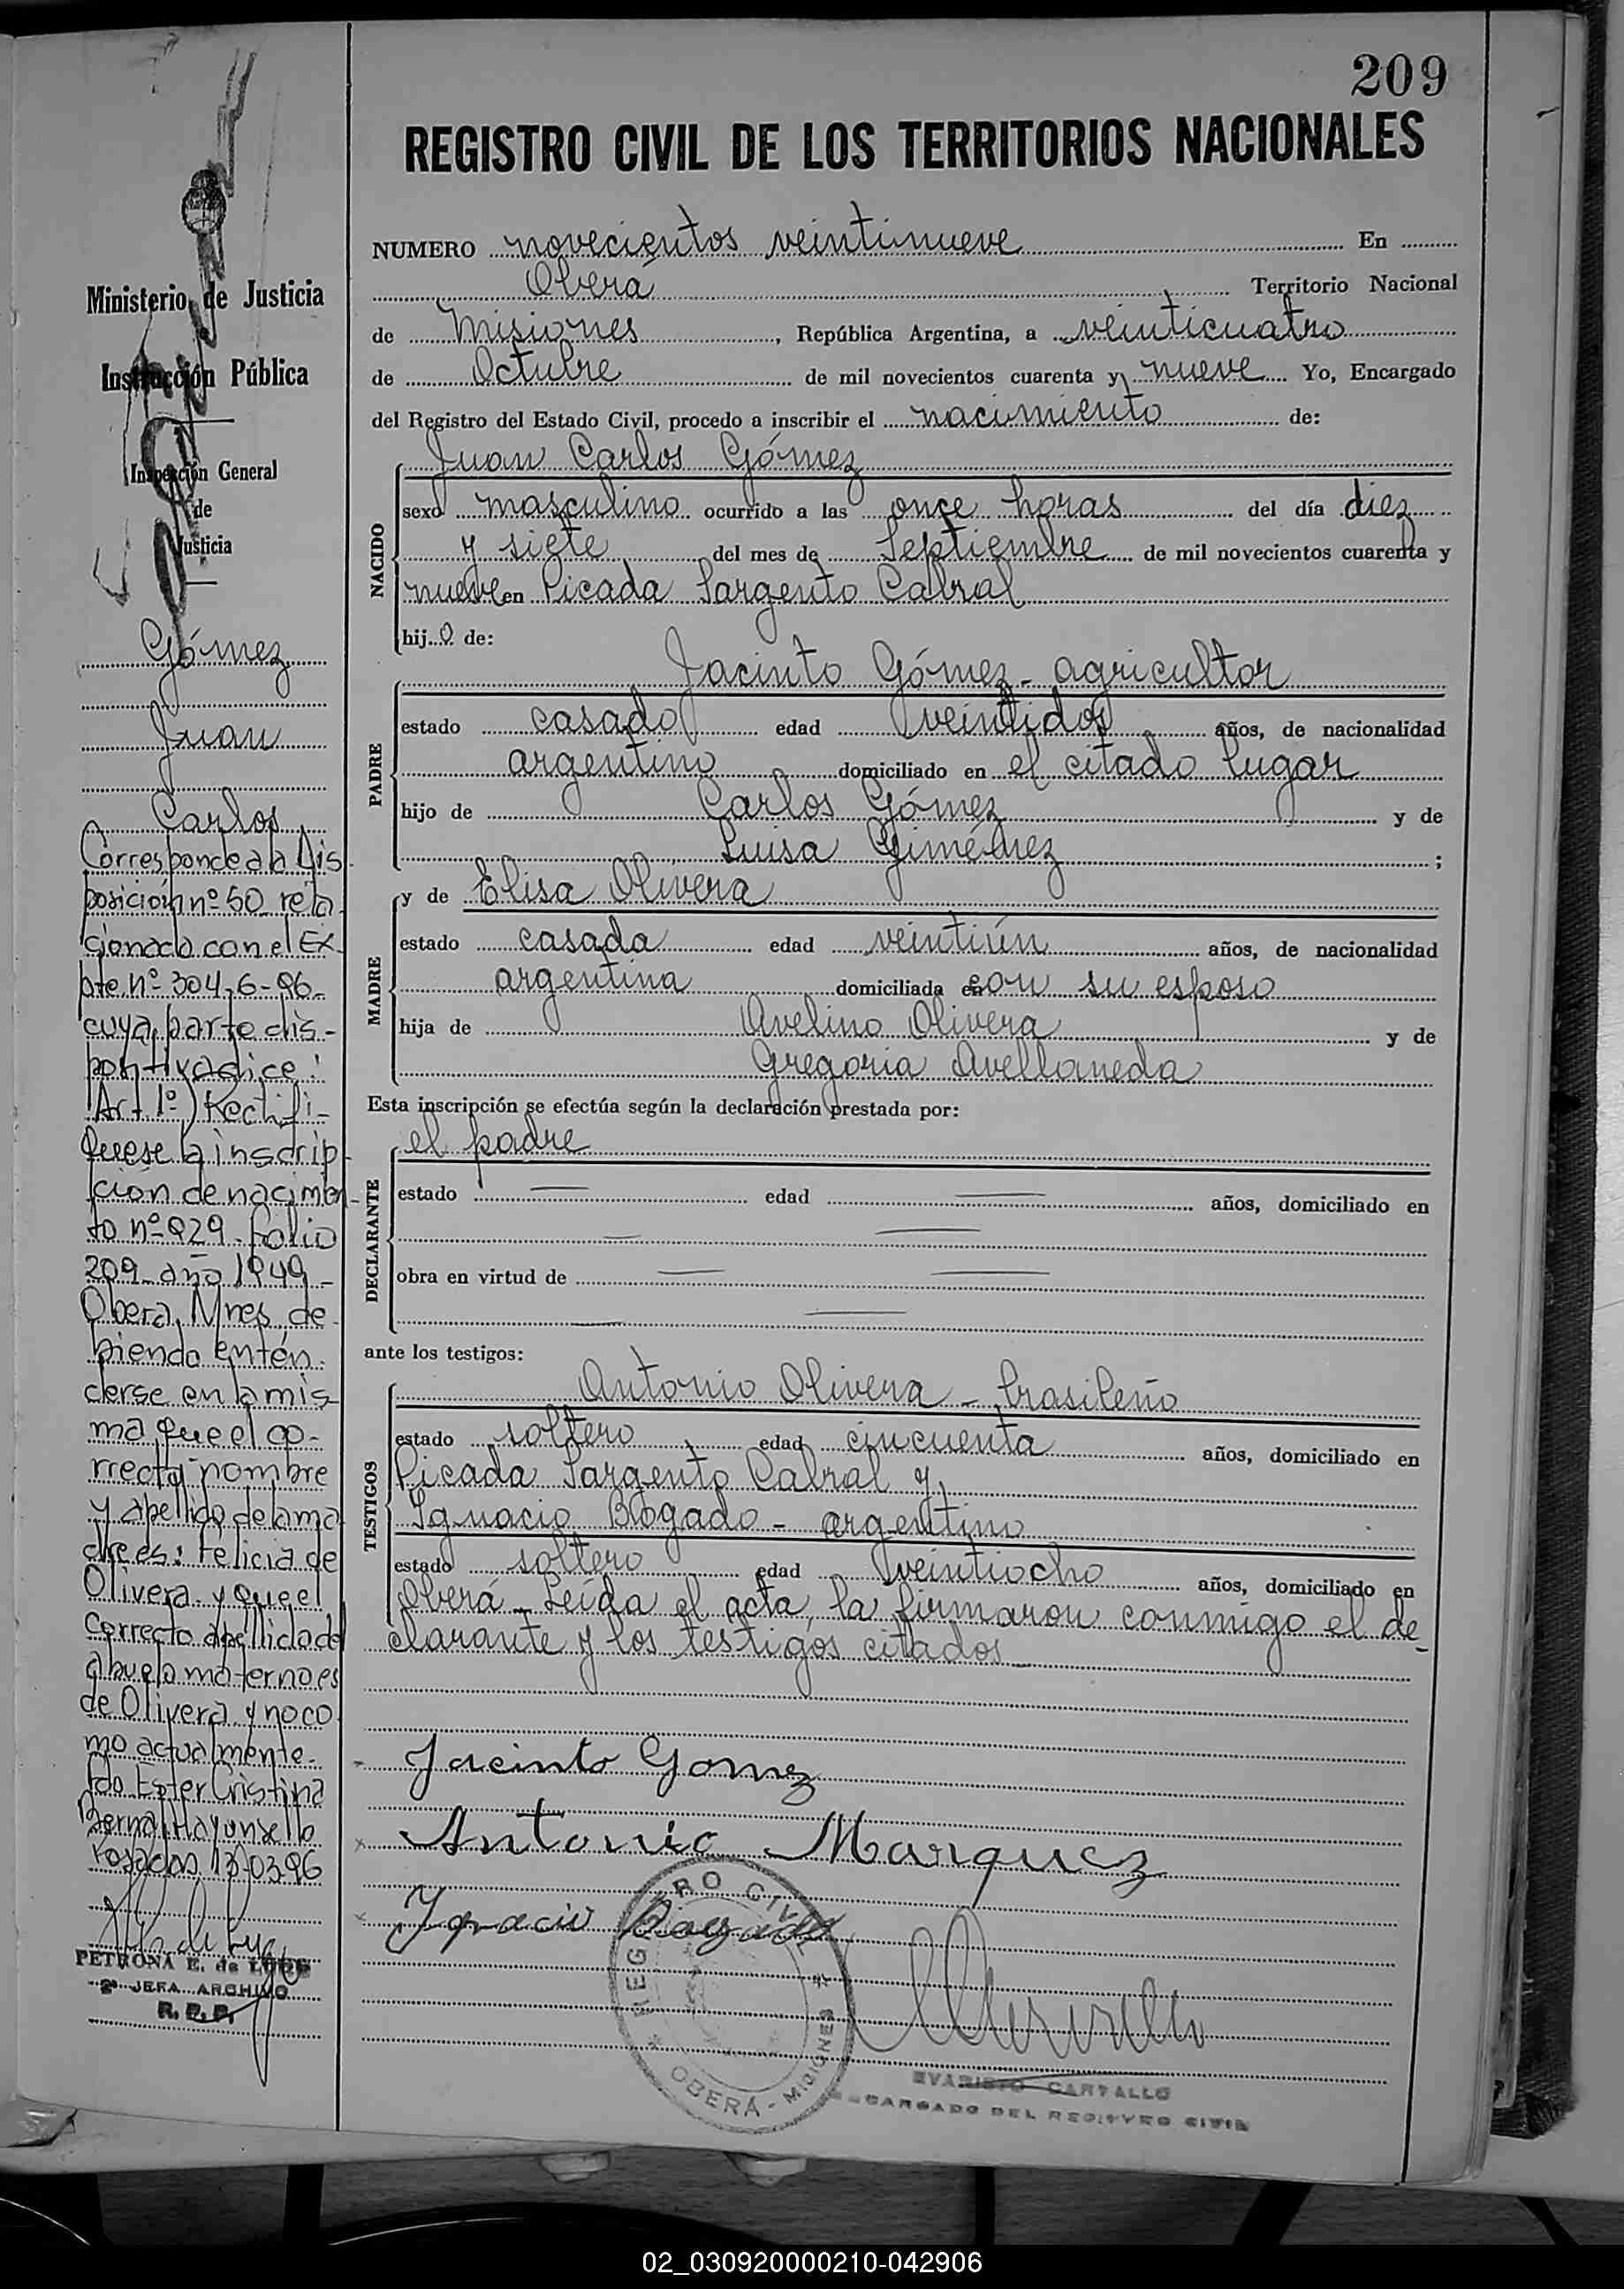 209
REGISTRO CIVIL DE LOS TERRITORIOS NACIONALES
NUMERO novecientos veintinueve En
Oberá Territorio Nacional
de Misiones, República Argentina, a veinticuatro
de Octubre de mil novecientos cuarenta y nueve Yo, Encargado
del Registro del Estado Civil, procedo a inscribir el nacimiento de:
NACIDO
Juan Carlos Gómez
sexo masculino ocurrido a las once horas del día diez
y siete del mes de Septiembre de mil novecientos cuarenta y
nueve en Picada Sargento Cabral
hijo de:
PADRE
Jacinto Gómez - agricultor
estado casado edad veintidos años, de nacionalidad
argentino domiciliado en el citado lugar
hijo de Carlos Gómez y de
Luisa Giménez ;
MADRE
y de Elisa Olivera
estado casada edad veintiún años, de nacionalidad
argentina domiciliada en con su esposo
hija de Avelino Olivera y de
Gregoria Avellaneda
Esta inscripción se efectúa según la declaración prestada por:
DECLARANTE
el padre
estado — edad — años, domiciliado en
obra en virtud de
ante los testigos:
TESTIGOS
Antonio Olivera - brasileño
estado soltero edad cincuenta años, domiciliado en
Picada Sargento Cabral y
Ignacio Bogado - argentino
estado soltero edad veintiocho años, domiciliado en
Oberá - Leída el acta, la firmaron conmigo el de-
clarante y los testigos citados
Jacinto Gomez
Antonio Marquez
Ignacio Bogado
REGISTRO CIVIL
OBERÁ - MISIONES
EVARISTO CARVALLO
ENCARGADO DEL REGISTRO CIVIL
Ministerio de Justicia
Instrucción Pública
Inspección General
de
Justicia
Gómez
Juan
Carlos
Corresponde a la Dis
posición nº 50 rela
cionado con el Ex-
pte. nº 304-6-96-
cuya parte dis-
positiva dice:
Art 1º) Rectifi-
quese la inscrip-
ción de nacimien-
to nº 929 - folio
209 - año 1949 -
Obera, Mnes, de
biendo enten-
derse en la mis
ma que el co-
rrecto nombre
y apellido de la ma
dre es: Felicia de
Olivera y que el
correcto apellido del
abuelo materno es
de Olivera y no co
mo actualmente.
fdo Ester Cristina
Posadas 13-03-96
PETRONA E. de
2ª JEFA ARCHIVO
R. P. P.
02_030920000210-042906